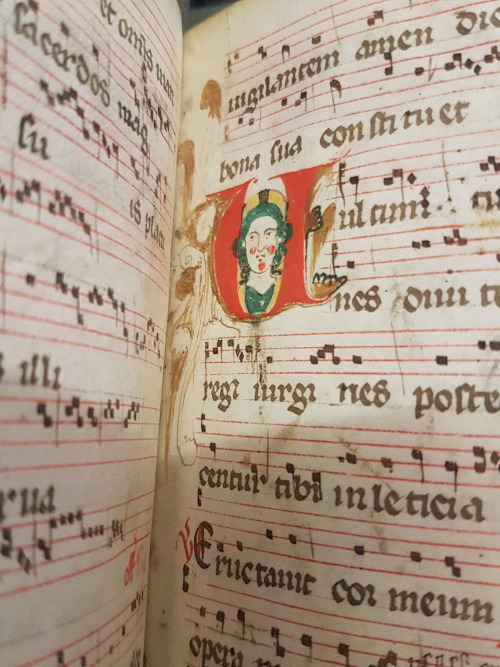 et omis
sacerdos mag
su
is
s illi
rua
off
uigilantem amen dic
bona sua constituet
Uultum tu
nes diui t
regi uirgi nes poste
centur tibi in leticia
V Eructauit cor meum
opera